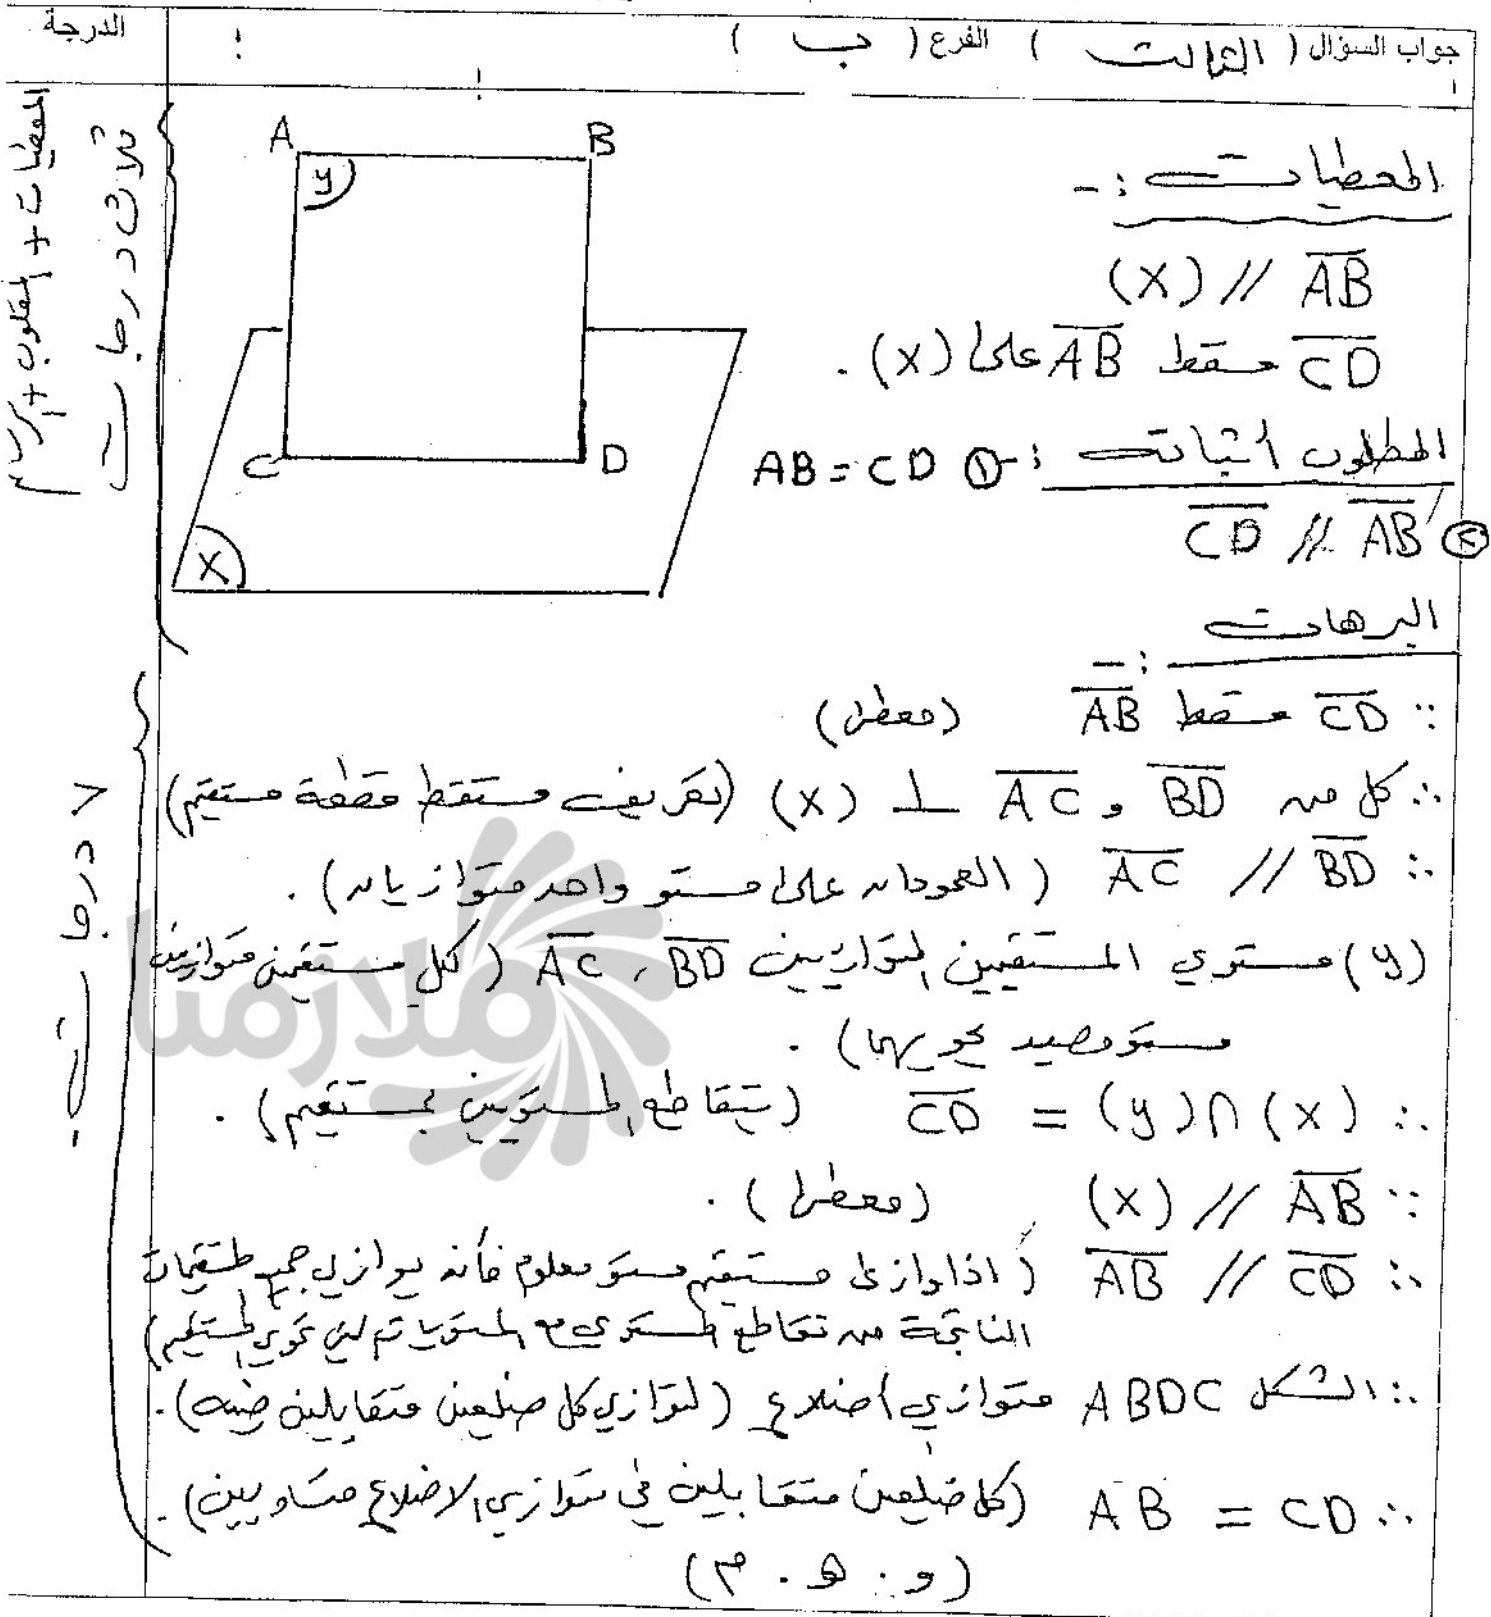 جواب السؤال ( الثالث ) الفرع ( ب )
الدرجة
المعطيات :-
(X) // AB
CD مسقط AB على (X) .
المطلوب أثبات :- ① AB = CD
② CD // AB
A
B
y
C
D
X
المعطيات + المطلوب + الرسم
ثلاث درجات
البرهان :-
∵ CD مسقط AB (معطى)
∴ كل من BD و AC ⊥ (X) (تعريف مسقط قطعة مستقيم)
∴ AC // BD ( العمودان على مستو واحد متوازيان ) .
(y) مستوي المستقيمين المتوازيين AC ، BD ( لكل مستقيمين متوازيين
مستو وحيد يحويهما ) .
∴ CD = (y) ∩ (X) ( يتقاطع المستويين بمستقيم ) .
∵ (X) // AB (معطى) .
∴ AB // CD ( اذا وازى مستقيم مستو معلوم فأنه يوازي جميع المستقيمات
الناتجة من تقاطع المستوي مع المستويات التي تحوي المستقيم)
∴ الشكل ABDC متوازي اضلاع ( لتوازي كل ضلعين متقابلين فيه ) .
∴ AB = CD (كل ضلعين متقابلين في متوازي الاضلاع متساويين) .
( و . هـ . م )
٧ درجات
ملازمنا